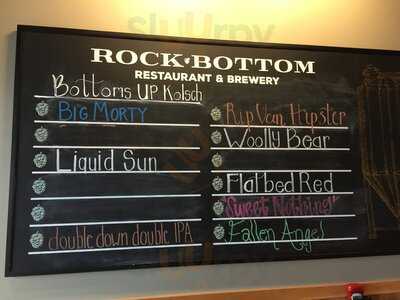 ROCK BOTTOM
RESTAURANT & BREWERY
Bottoms UP Kolsch
BIG MORTY
Liquid Sun
double down double IPA
Rip Van Hipster
Woolly Bear
Flatbed Red
Sweet Nothing!
Fallen Angel